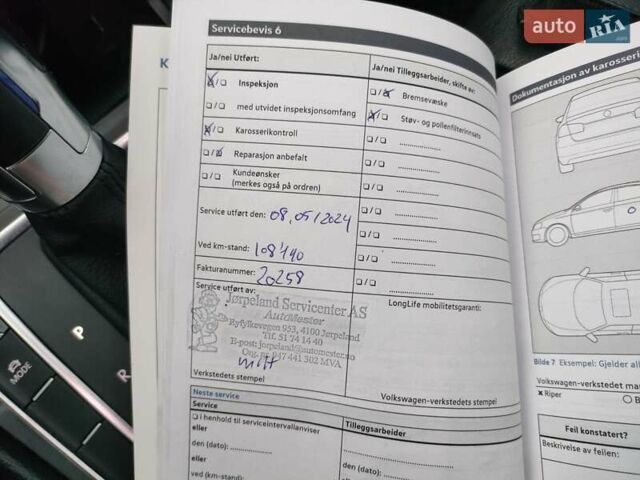 auto RIA.com
Servicebevis 6
Ja/nei Utført:
Ja/nei Tilleggsarbeider, skifta av:
Inspeksjon
Bremsevæske
med utvidet inspeksjonsomfang
Støv- og pollenfilterinnsats
Karosserikontroll
Reparasjon anbefalt
Kundeønsker
(merkes også på ordren)
Service utført den: 08.05/2024
Ved km-stand: 108'190
Fakturanummer: 20258
Service utført av:
LongLife mobilitetsgaranti:
Jørpeland Servicenter AS
AutoMester
Ryfylkevegen 953, 4100 Jørpeland
Tlf. 51 74 14 40
E-post: jorpeland@automester.no
Org. nr. 947 441 302 MVA
Verkstedets stempel
Volkswagen-verkstedets stempel
Neste service
Service
Tilleggsarbeider
i henhold til serviceintervallanviser
eller
den (dato):
den (dato):
eller
eller
ved (km-stand):
Dokumentasjon av karosseri
Bilde 7 Eksempel: Gjelder all
Volkswagen-verkstedet ma
Riper
B
Feil konstatert?
Beskrivelse av feilen:
K
P
R
MODE